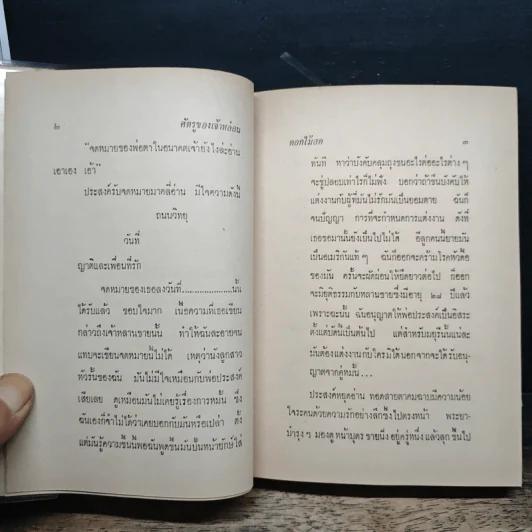 ๒
ศัตรูของเจ้าหล่อน
"จดหมายของพ่อตาในอนาคตเจ้ายังไงล่ะ อ่าน
เอาเอง เอ้า"
ประสงค์รับจดหมายมาคลี่อ่าน มีใจความดังนี้
ถนนวิทยุ
วันที่
ญาติและเพื่อนที่รัก
จดหมายของเธอลงวันที่....................นั้น
ได้รับแล้ว ขอบใจมาก เนื้อความที่เธอเขียน
กล่าวถึงเจ้าหลานชายนั้น ทำให้ฉันละอายจน
แทบจะเขียนจดหมายนี้ไม่ได้ เหตุว่านังลูกสาว
หัวรั้นของฉัน มันไม่มีใจเหมือนกับพ่อประสงค์
เสียเลย ดูเหมือนมันไม่เคยรู้เรื่องการหมั้น ซึ่ง
ฉันเองก็จำไม่ได้ว่าเคยบอกกับมันหรือเปล่า ตั้ง
แต่มันรู้ความขึ้นนี่ พอฉันพูดขึ้นมันปั้นหน้ายักษ์ใส่
ดอกไม้สด
๓
ทันที หาว่าบังคับคลุมถุงชนอะไรต่ออะไรต่าง ๆ
จะขู่ปลอบเท่าไรก็ไม่ฟัง บอกว่าถ้าขืนบังคับให้
แต่งงานกับผู้ที่มันไม่รักมันเป็นยอมตาย ฉันก็
จนปัญญา การที่จะกำหนดการแต่งงาน ดังที่
เธอขอมานั้นยังเป็นไปไม่ได้ อีลูกคนนี้ยายมัน
เป็นอเมริกันแท้ ๆ ฉันก็ออกจะคร้ามโรคหัวดื้อ
ของมัน ครั้นจะผัดผ่อนให้ยืดยาวต่อไป ก็ออก
จะมิยุติธรรมกับหลานชายซึ่งมีอายุ ๒๘ ปีแล้ว
เพราะฉะนั้น ฉันอนุญาตให้พ่อประสงค์เป็นอิสระ
ตั้งแต่บัดนี้เป็นต้นไป แต่สำหรับมยุรีนั้นแน่ละ
มันต้องแต่งงานกับใครมิได้นอกจากจะได้รับอนุ-
ญาตจากคู่หมั้น...
ประสงค์หยุดอ่าน ทอดสายตาคมฉาบมีความน้อย
ใจระคนด้วยความรักอย่างลึกซึ้งไปตรงหน้า พระยา-
บำรุง ๆ มองดูหน้าบุตรชายนิ่ง อยู่ครู่หนึ่ง แล้วลุกขึ้นไป